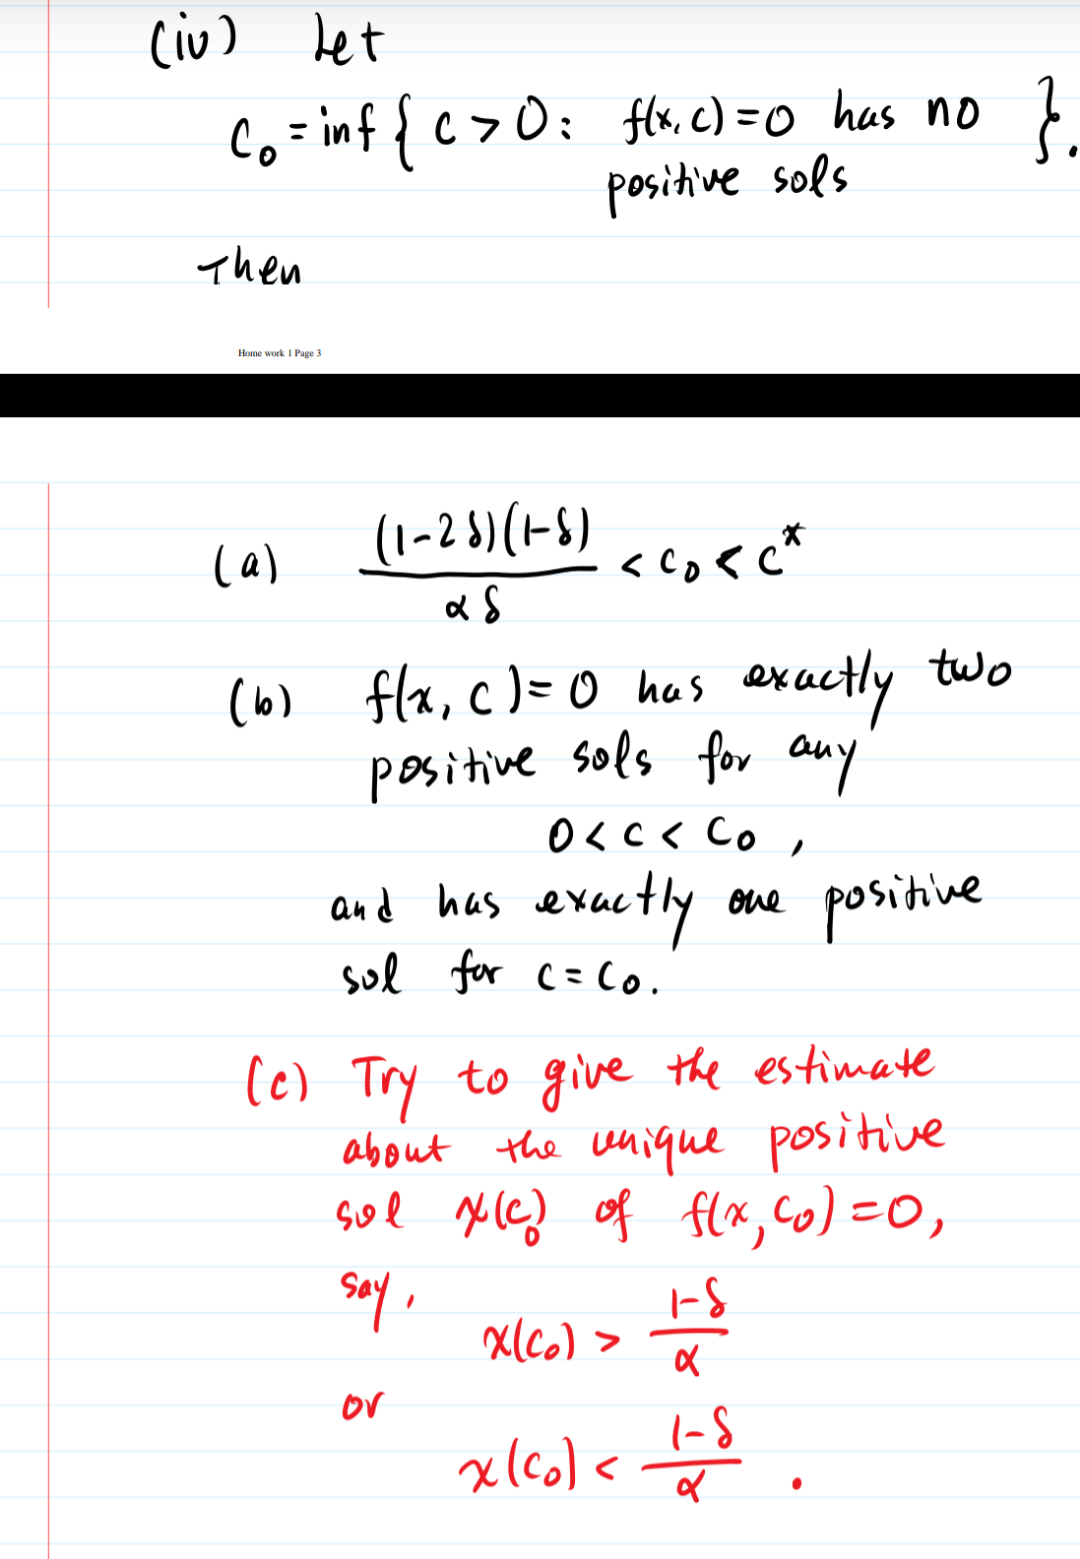 (iv) Let
C₀ = inf { c > 0 : f(x, c) = 0 has no }.
positive sols
Then
Home work 1 Page 3
(a) (1-2δ)(1-δ) / αδ < C₀ < C*
(b) f(x, c) = 0 has exactly two
positive sols for any
0 < c < C₀ ,
and has exactly one positive
sol for c = C₀.
(c) Try to give the estimate
about the unique positive
sol x(c₀) of f(x, C₀) = 0,
say,
x(C₀) > 1-δ / α
or
x(C₀) < 1-δ / α .